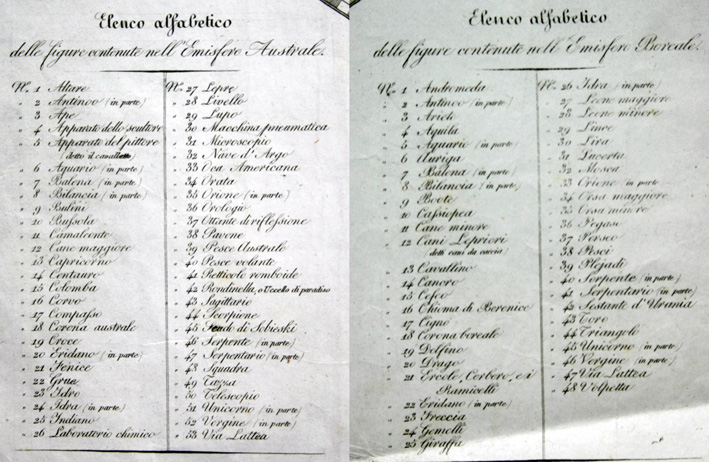 Elenco alfabetico
delle figure contenute nell'Emisfero Australe.
N.o 1 Altare
" 2 Antinoo (in parte)
" 3 Ape
" 4 Apparato dello scultore
" 5 Apparato del pittore
detto il cavalletto
" 6 Aquario (in parte)
" 7 Balena (in parte)
" 8 Bilancia (in parte)
" 9 Bulini
" 10 Bussola
" 11 Camaleonte
" 12 Cane maggiore
" 13 Capricorno
" 14 Centauro
" 15 Colomba
" 16 Corvo
" 17 Compasso
" 18 Corona australe
" 19 Croce
" 20 Eridano (in parte)
" 21 Fenice
" 22 Grue
" 23 Idro
" 24 Idra (in parte)
" 25 Indiano
" 26 Laboratorio chimico
N.o 27 Lepre
" 28 Livello
" 29 Lupo
" 30 Macchina pneumatica
" 31 Microscopio
" 32 Nave d'Argo
" 33 Oca Americana
" 34 Orata
" 35 Orione (in parte)
" 36 Orologio
" 37 Ottante di riflessione
" 38 Pavone
" 39 Pesce Australe
" 40 Pesce volante
" 41 Retticolo romboide
" 42 Rondinella, o Uccello di paradiso
" 43 Sagittario
" 44 Scorpione
" 45 Scudo di Sobieski
" 46 Serpente (in parte)
" 47 Serpentario (in parte)
" 48 Squadra
" 49 Tazza
" 50 Telescopio
" 51 Unicorno (in parte)
" 52 Vergine (in parte)
" 53 Via Lattea
Elenco alfabetico
delle figure contenute nell'Emisfero Boreale.
N.o 1 Andromeda
" 2 Antinoo (in parte)
" 3 Ariete
" 4 Aquila
" 5 Aquario (in parte)
" 6 Auriga
" 7 Balena (in parte)
" 8 Bilancia (in parte)
" 9 Boote
" 10 Cassiopea
" 11 Cane minore
" 12 Cani Leprieri
detti cani da caccia
" 13 Cavallino
" 14 Cancro
" 15 Cefeo
" 16 Chioma di Berenice
" 17 Cigno
" 18 Corona boreale
" 19 Delfino
" 20 Drago
" 21 Ercole, Cerbero, e i
Ramicelli
" 22 Eridano (in parte)
" 23 Freccia
" 24 Gemelli
" 25 Giraffa
N.o 26 Idra (in parte)
" 27 Leone maggiore
" 28 Leone minore
" 29 Lince
" 30 Lira
" 31 Lucerta
" 32 Mosca
" 33 Orione (in parte)
" 34 Orsa maggiore
" 35 Orsa minore
" 36 Pegaso
" 37 Perseo
" 38 Pesci
" 39 Plejadi
" 40 Serpente (in parte)
" 41 Serpentario (in parte)
" 42 Sestante d'Urania
" 43 Toro
" 44 Triangolo
" 45 Unicorno (in parte)
" 46 Vergine (in parte)
" 47 Via Lattea
" 48 Volpetta